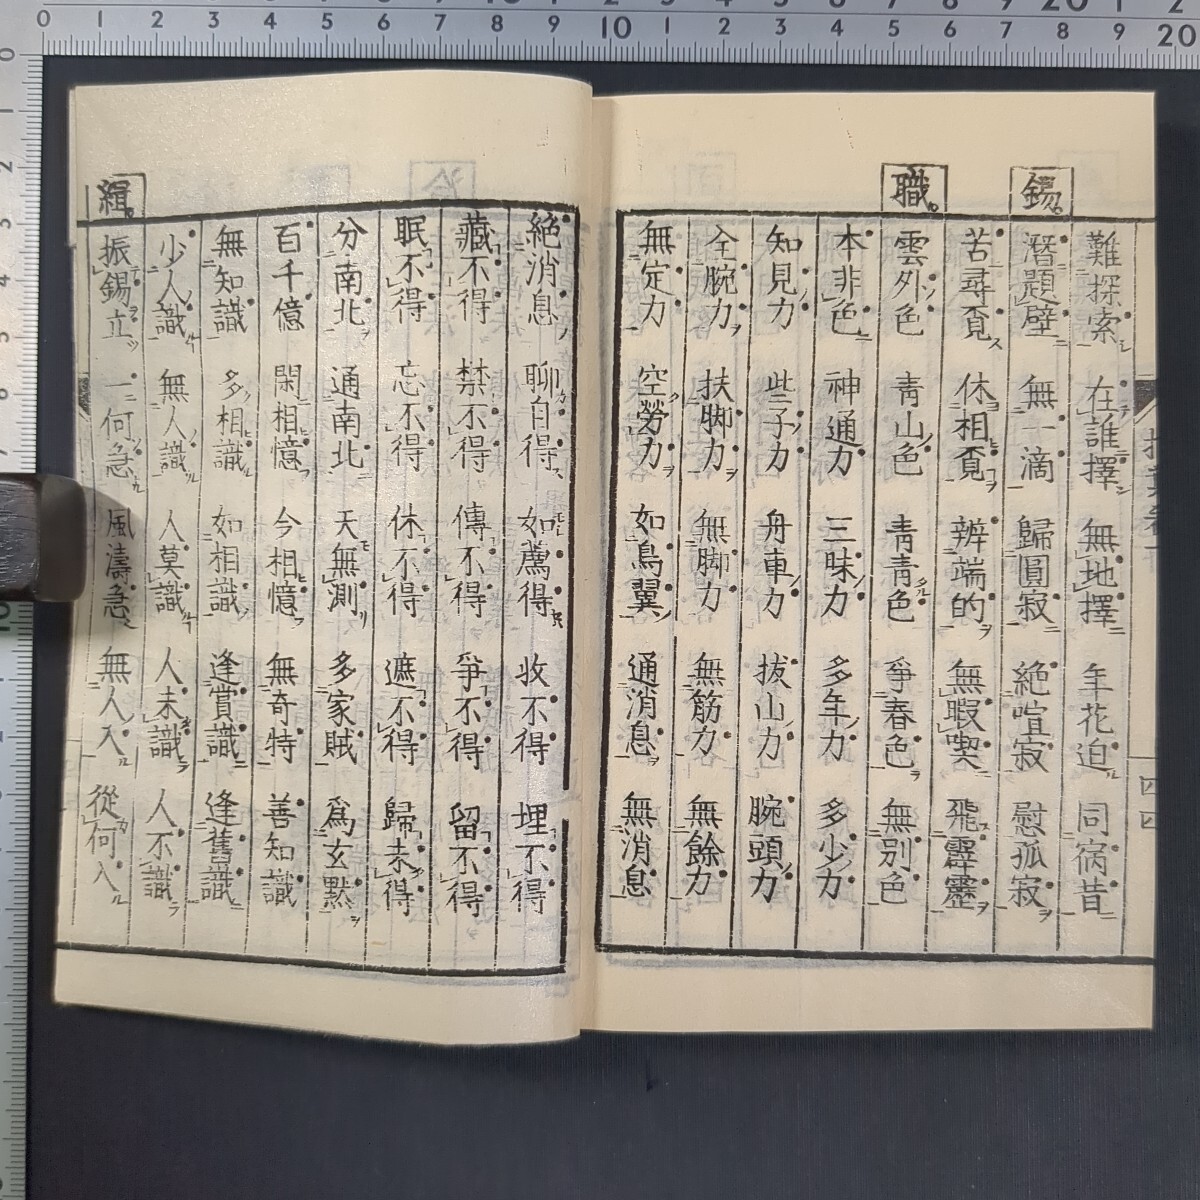 難探索 在誰擇 無地擇 年花迫 同病昔
錫
潛題壁 無一滴 歸圓寂 絶喧寂 慰孤寂
苦尋覔 休相覔 辨端的 無暇喫 飛霹靂
職
雲外色 青山色 青青色 爭春色 無別色
本非色 神通力 三昧力 多年力 多少力
知見力 些子力 舟車力 拔山力 腕頭力
全腕力 扶脚力 無脚力 無筋力 無餘力
無定力 空勞力 如鳥翼 通消息 無消息
絶消息 聊自得 如薦得 收不得 埋不得
藏不得 禁不得 傳不得 爭不得 留不得
眠不得 忘不得 休不得 遮不得 歸未得
分南北 通南北 天無測 多家賊 爲玄默
百千億 閑相憶 今相憶 無奇特 善知識
無知識 多相識 如相識 逢賞識 逢舊識
少人識 無人識 人莫識 人未識 人不識
緝
振錫立 一何急 風濤急 無人入 從何入
四四